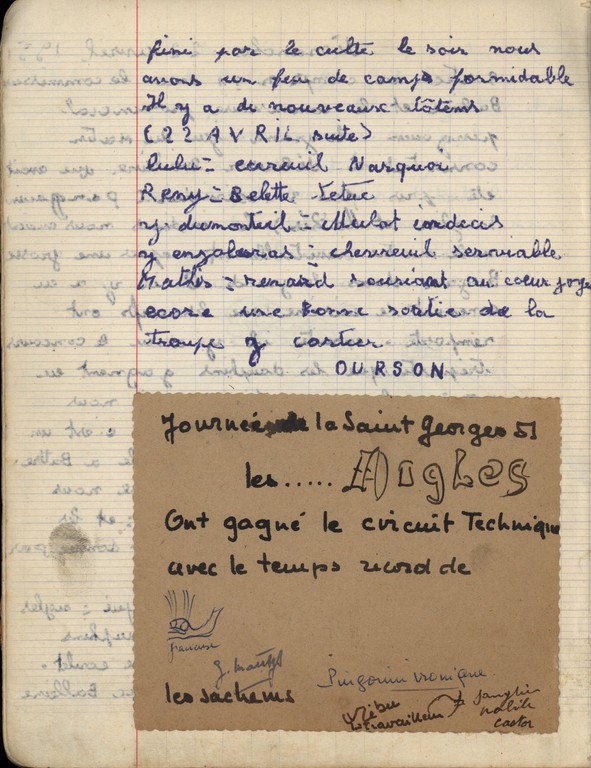 fini par le culte le soir nous
avons un feu de camp formidable
Il y a du nouveaux tôtems
(22 AVRIL suite)
lulu = ecureuil Narquoi
Remy = Belette Tetue
y dumonteil = Mulot indecis
y enjalveras = chevreuil serviable
Mathis = renard souriant au coeur joye
ecore une Bonne sortie de la
troupe y cartier
OURSON
Journée de la Saint Georges 51
les..... Aigles
Ont gagné le circuit Technique
avec le temps record de
G. Mantz
Pingouin ironique
les sachems
Zébu travailleur
castor